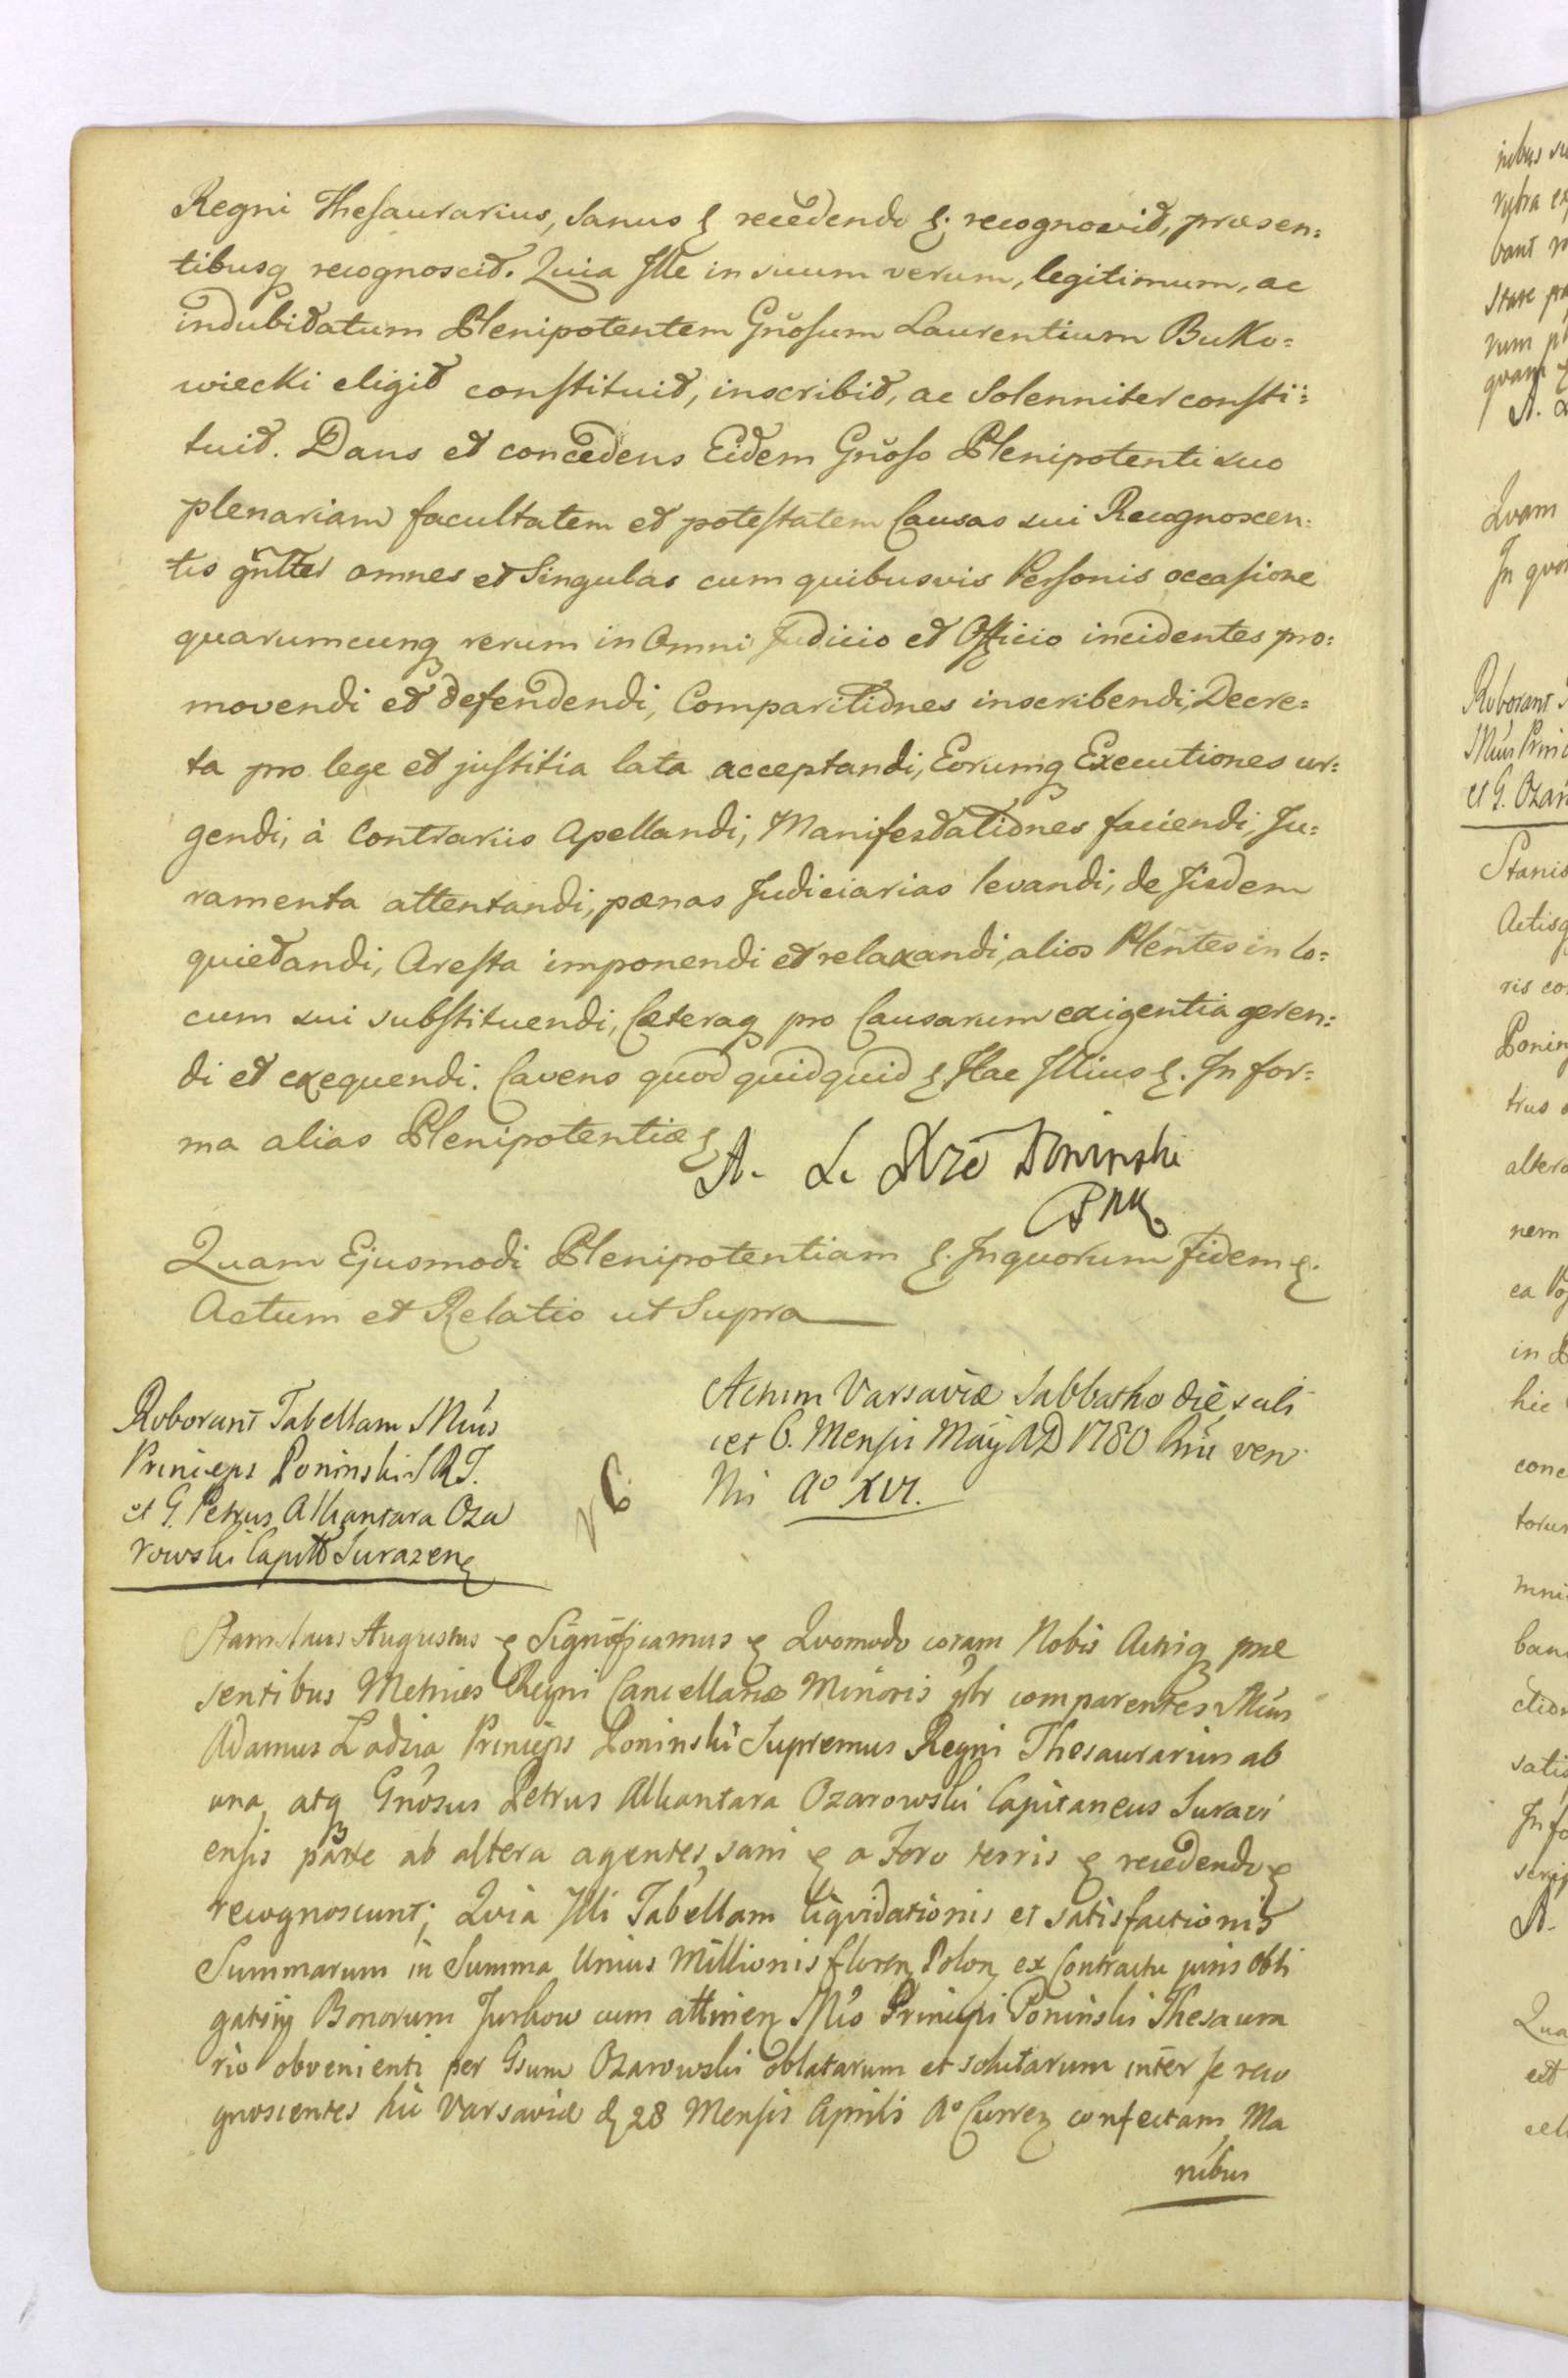 Regni Thesaurarius, Sanus & recedendo &. recognovit, præsen=
tibusq recognoscit. Quia Ille in suum verum, legitimum, ac
indubitatum Plenipotentem Gn̄osum Laurentium Buko=
wiecki eligit constituit, inscribit, ac Solenniter consti=
tuit. Dans et concedens Eidem Gn̄oso Plenipotenti suo
plenariam facultatem et potestatem Causas sui Recognoscen=
tis gn̄lter omnes et Singulas cum quibusvis Personis occasione
quarumcunq rerum in Omni Judicio et Officio incidentes pro=
movendi et defendendi, Comparitiones inscribendi, Decre=
ta pro lege et justitia lata acceptandi, Eorumq Executiones ur=
gendi, à Contrariis Apellandi, Manifestationes faciendi, Ju=
ramenta attentandi, pænas Judiciarias levandi, de Iisdem
quietandi, Aresta imponendi et relaxandi, alios Pl̄entes in lo=
cum sui substituendi, Cæteraq pro Causarum exigentia geren=
di et exequendi. Cavens quod quidquid & Hac Illius &. In for=
ma alias Plenipotentiæ &
A. L. Xże Poninski
Quam Ejusmodi Plenipotentiam &. In quorum fidem &.
Actum et Relatio ut Supra
Roborant Tabellam Ill̄mus
Princeps Poninski S R T.
et G. Petrus Alkantara Oża
rowski Capitt Surazen
Actum Varsaviæ Sabbatho die scili
cet 6. Mensis Maij AD 1780 Rn̄i ven
Nri Ao XVI.
Stanislaus Augustus & Significamus & Quomodo coram Nobis Actisq præ
sentibus Metrices Regni Cancellariæ Minoris plr comparentes Ill̄mus
Adamus Lodzia Princeps Poninski Supremus Regni Thesaurarius ab
una, atq Gn̄osus Petrus Alkantara Ożarowski Capitaneus Suravi
ensis parte ab altera agentes, sani & a Foro terris & recedendo &
recognoscunt; Quia Illi Tabellam liqvidationis et satisfactionis
Summarum in Summa Unius Millionis floren Polon ex Contractu juris obli
gatorij Bonorum Jurkow cum attinen Ill̄mo Principi Poninski Thesaura
rio obvenienti per Gsum Ożarowski oblatarum et solutarum inter se reco
gnoscentes hic Varsaviæ d 28 Mensis Aprilis Ao Curren confectam, Ma
nibus